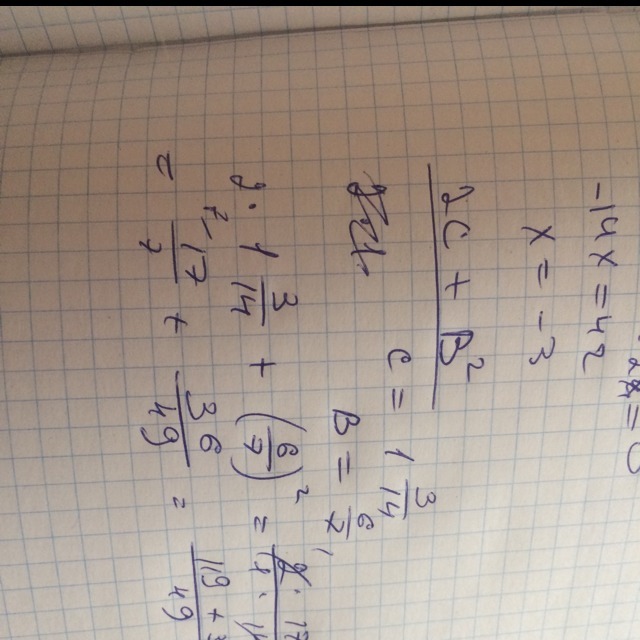 = 0
-14x = 42
x = -3
2C + B²
C = 1 3/14
B = 6/7
2 · 1 3/14 + (6/7)² = 2 · 17
= 17/7 + 36/49 = 119 +/49